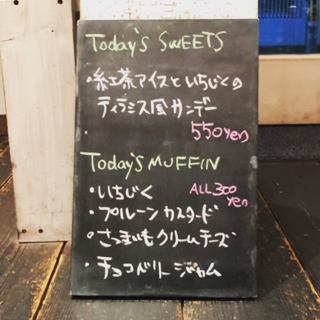 Today's SWEETS
・紅茶アイスといちじくの
ティラミス風サンデー
550yen
Today's MUFFIN
・いちじく
ALL 300 yen
・プルーンカスタード
・さつまいもクリームチーズ
・チョコベリージャム